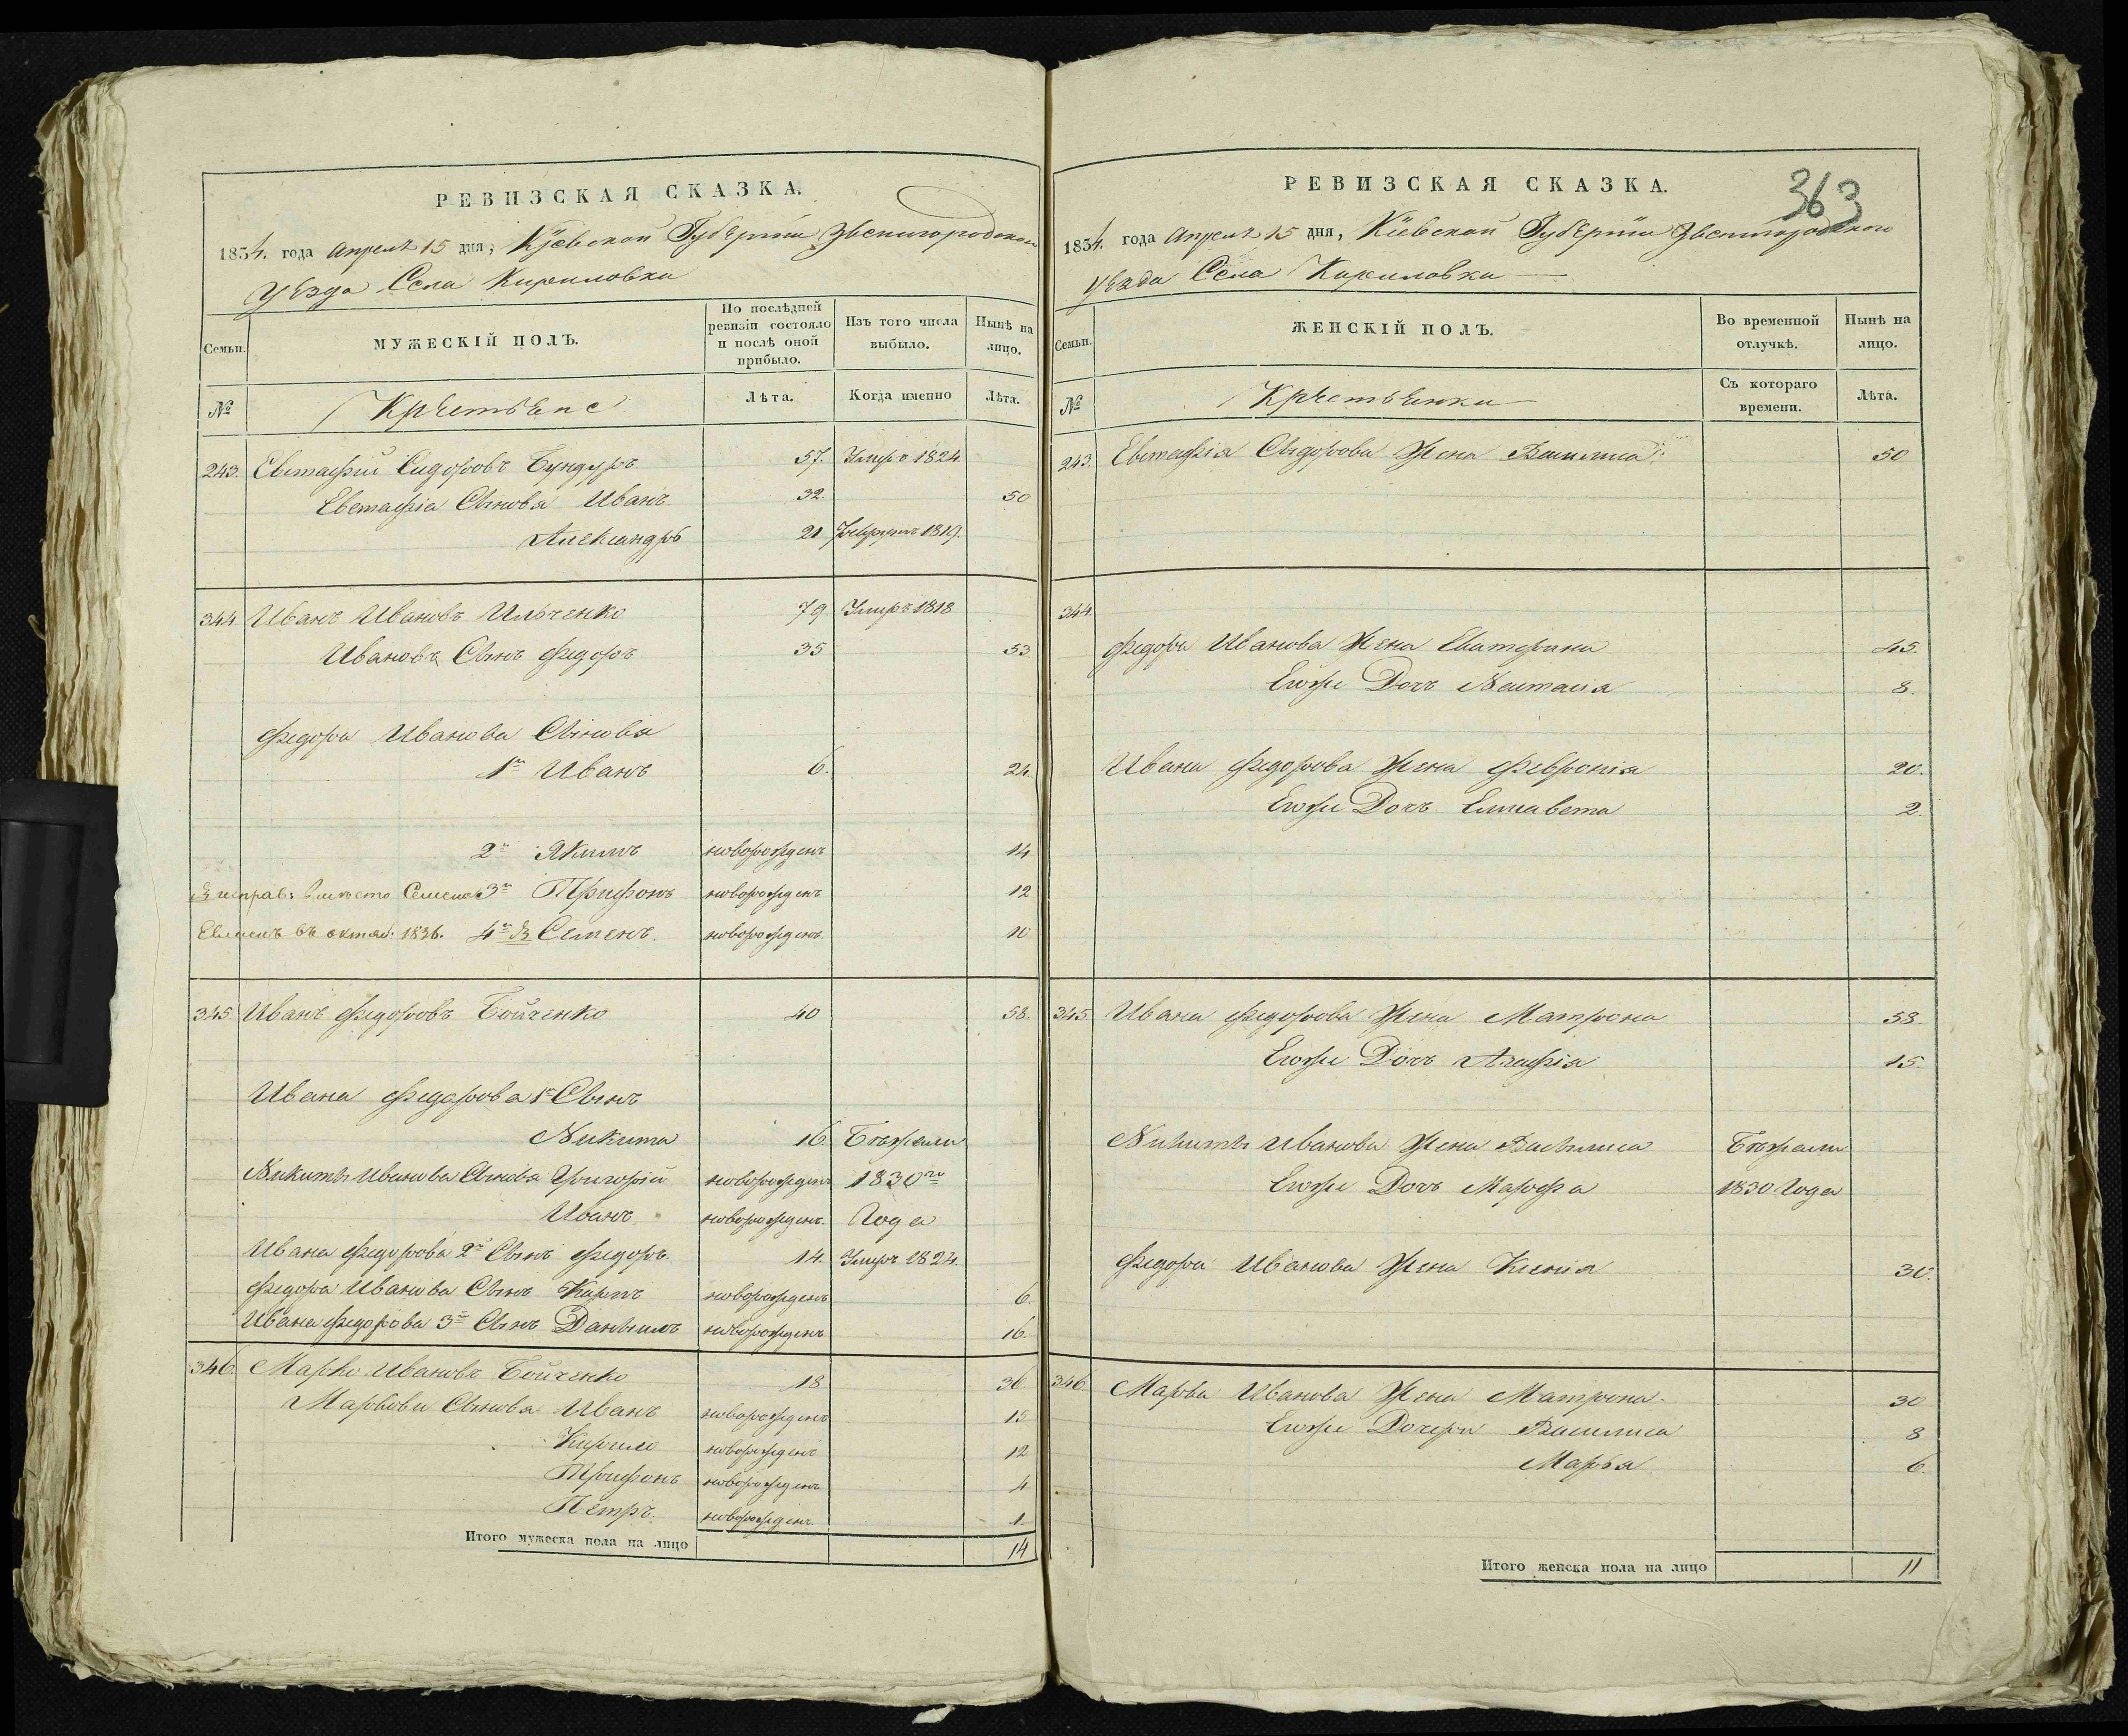 РЕВИЗСКАЯ СКАЗКА.
1834. года Апреля 15 дня, Кіевской Губерніи Звенигородского
уѣзда Села Кириловки
Семьи.
МУЖЕСКІЙ ПОЛЪ.
По послѣдней
ревизіи состояло
и послѣ оной
прибыло.
Изъ того числа
выбыло.
Нынѣ на
лицо.
№
Крестьяне
Лѣта.
Когда именно
Лѣта.
243. Евстафий Сидоровъ Бундуръ 57. Умеръ 1824.
Евстафіа Сынова Иванъ 32. 50
Александръ 21 1819.
344 Иванъ Ивановъ Ильченко 79. Умеръ 1818
Ивановъ Сынъ Федоръ 35 53.
Федора Иванова Сыновя
1й Иванъ 6. 24.
2й Якимъ новорожденъ 14
исправ: вместо Семена 3й Трифонъ новорожденъ 12
въ октяб: 1836. 4й Семенъ. новорожденъ 10
345. Иванъ Федоровъ Бойченко 40 58.
Ивана Федорова 1й Сынъ
Никита 16. Бежали
Никиты Иванова Сыновя Григорій новорожденъ 1830го
Иванъ новорожденъ. Года
Ивана Федорова 2й Сынъ Федоръ. 14. Умеръ 1824.
Федора Иванова Сынъ Карпъ новорожденъ 6.
Ивана Федорова 3й Сынъ Данъилъ новорожденъ 16.
346. Марко Ивановъ Бойченко 18 36
Марковы Сыновя Иванъ новорожденъ 15
Кирило новорожденъ 12
Трифонъ новорожденъ 4
Петръ. новорожденъ. 1
Итого мужеска пола на лицо 14
363
РЕВИЗСКАЯ СКАЗКА.
1834. года Апреля 15 дня, Кіевской Губерніи Звенигородского
уезда Села Кириловки
Семьи.
ЖЕНСКІЙ ПОЛЪ.
Во временной
отлучкѣ.
Нынѣ на
лицо.
№
Крестьянки
Съ котораго
времени.
Лѣта.
243. Евстафія Сыдорова Жена Василиса. 50
344.
Федора Иванова Жена Екатерина 45.
Егоже Дочь Настасія 8.
Ивана Федорова Жена Февронія 20.
Егоже Дочь Елисавета 2.
345. Ивана Федорова Жена Матрона 58.
Егоже Дочь Агафія 15.
Никиты Иванова Жена Василиса Бежали
Егоже Дочь Марфа 1830 Года
Федора Иванова Жена Ксенія 30.
346. Марка Иванова Жена Матрона. 30
Егоже Дочери Василиса 8
Марья 6.
Итого женска пола на лицо 11